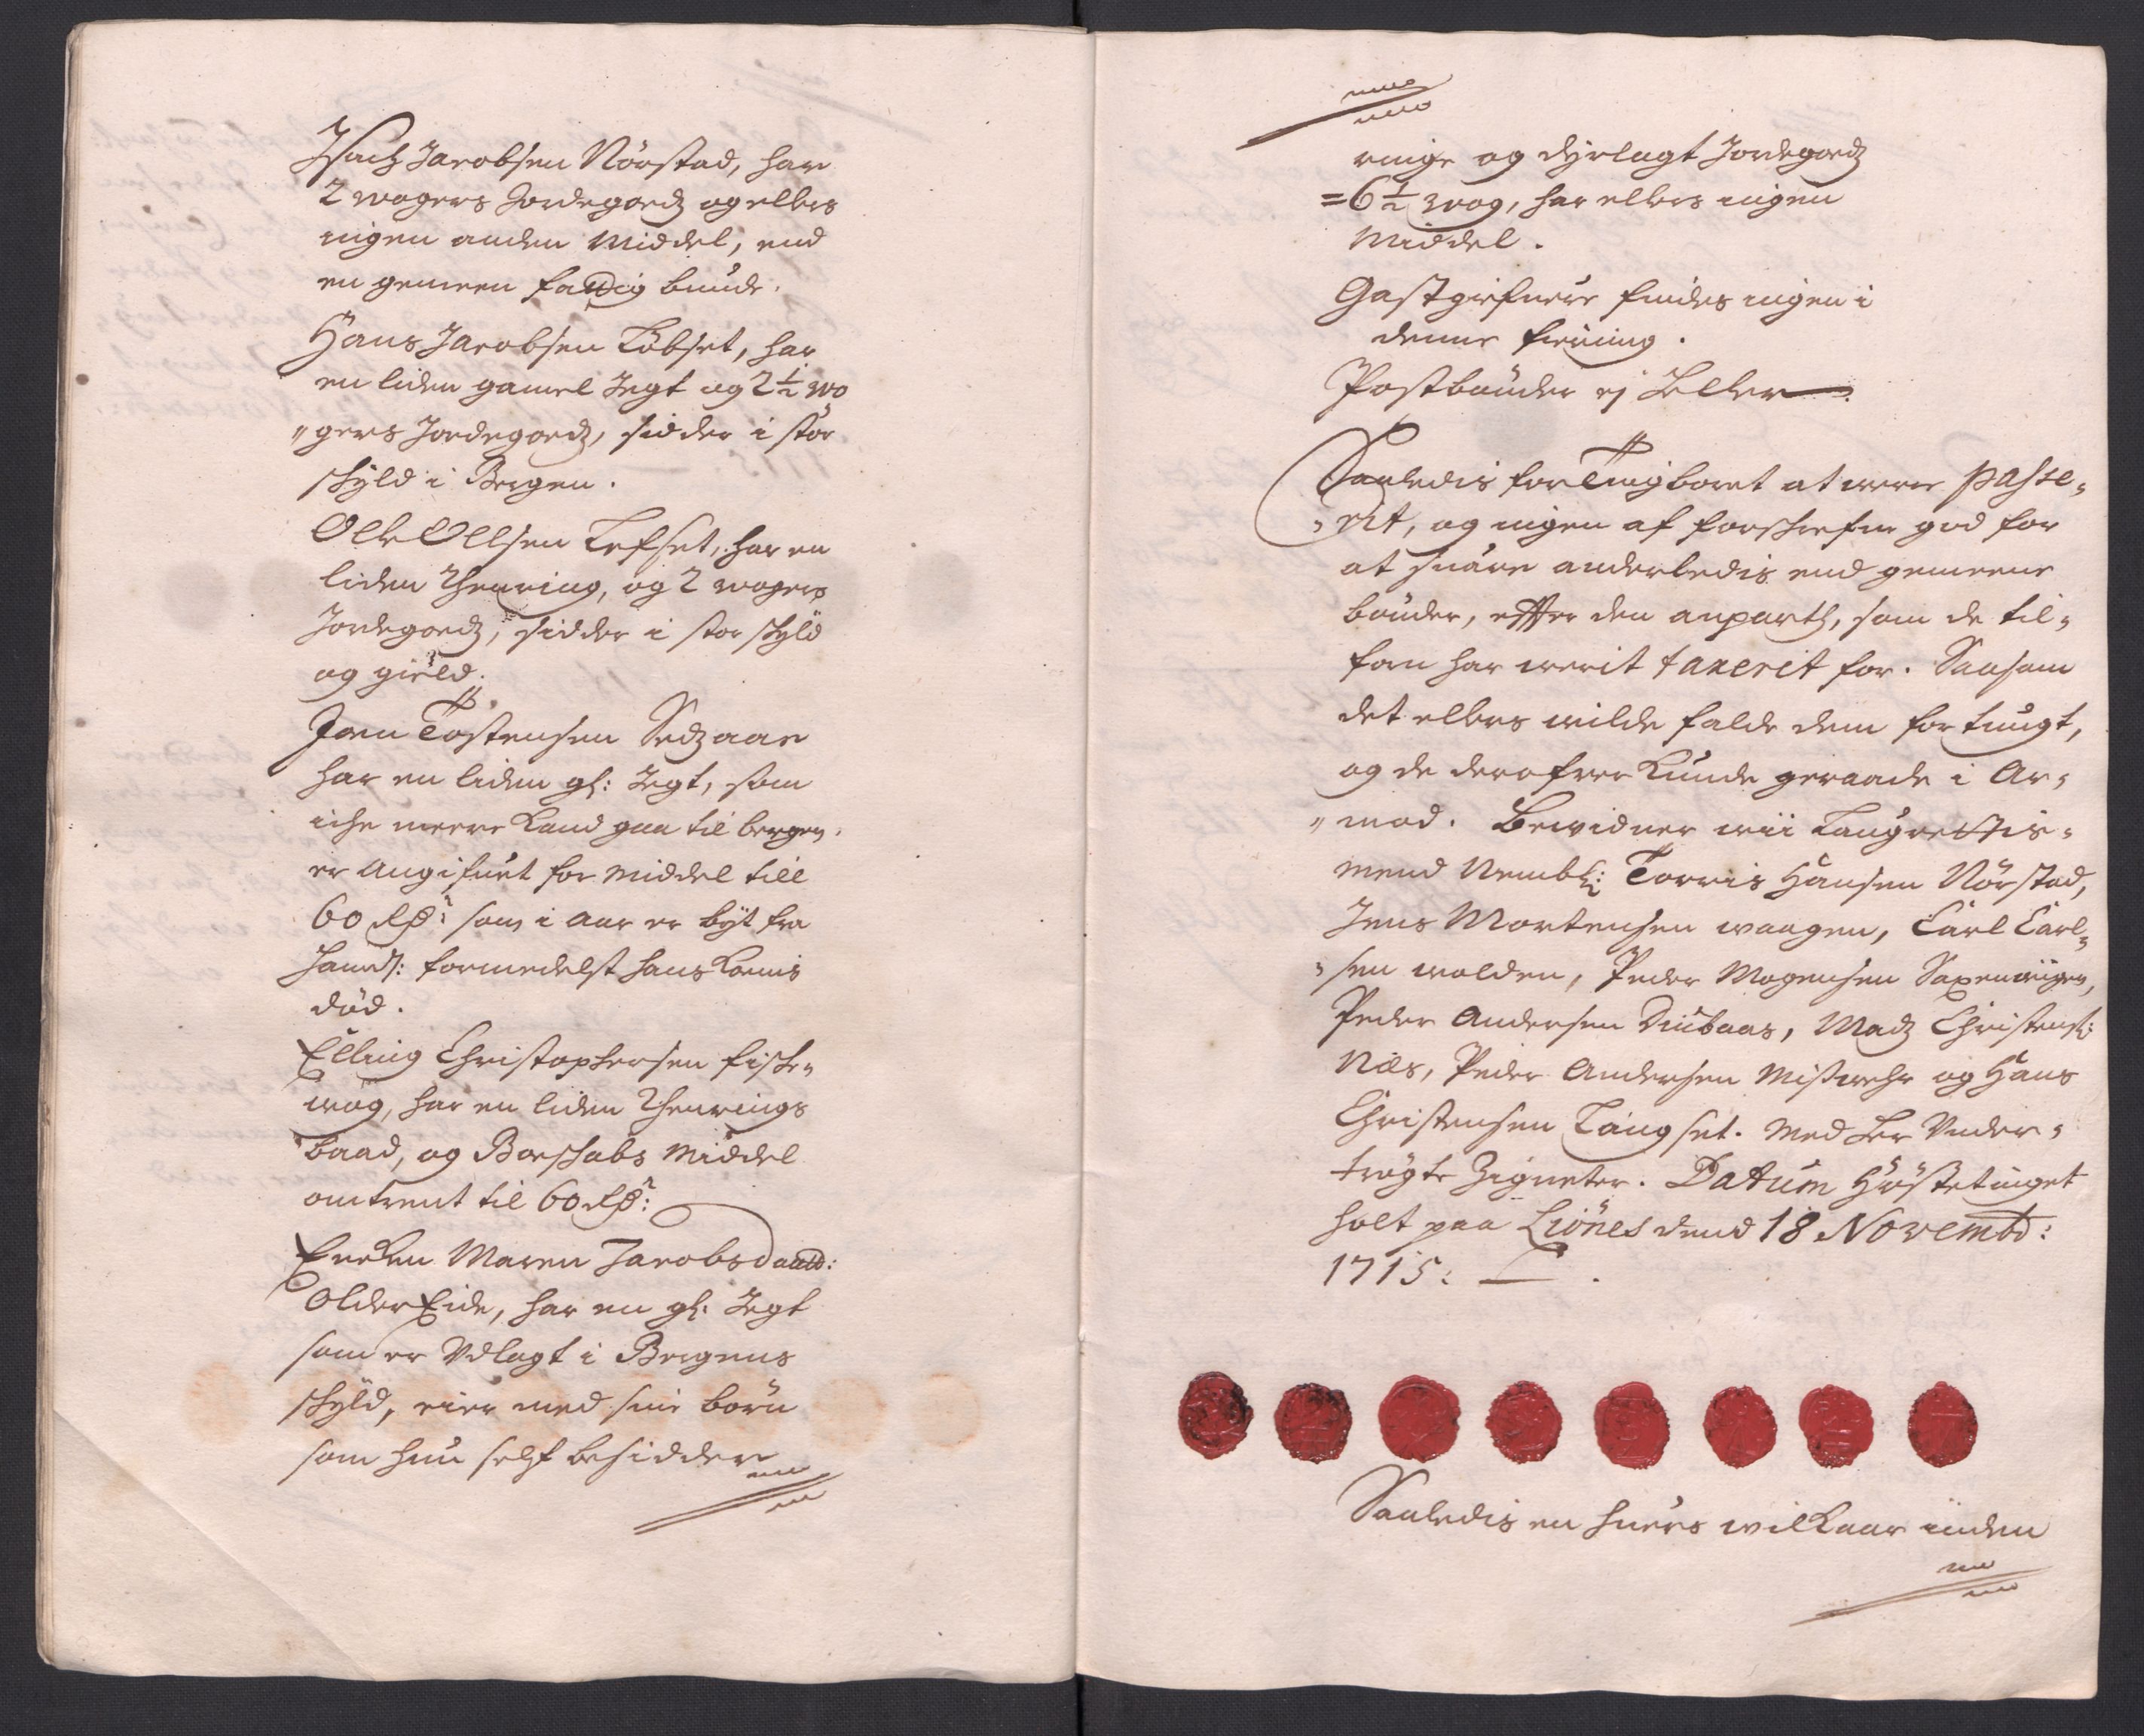 Isach Jacobsen Nörstad, har
2 wogers Jordegoedz og ellers
ingen anden Middel, end
en gemeen fattig bunde.
Hans Jacobsen Löbset, har
en liden gamel Jegt og 2½ wo
"gers Jordegoedz, sidder i stor
skyld i Bergen.
Olle Ollsen Lefset, har en
liden Thenring, og 2 wogers
Jordegoedz, sidder i stor skyld
og gield.
Joen Tostensen Sedzaas
har en liden gl: Jegt, som
iche meere kand gaa til bergen,
er Angifuet for Middel till
60 Rdr: som i Aar er byt fra
hannd: formedelst hans konis
död.
Elling Christophersen fiske,,
wog, har en liden Thenrings
baad, og Boeskabs Middel
omtrent til 60 Rdr:
Encken Maren Jacobsdaatt:
OlderEide, har en gl: Jegt
som er Vdlagt i Bergens
skyld, eier med sine börn
som hun self besidder
ringe og dyrlagt Jordegoedz
=6½ wog, har ellers ingen
Middel.
Gastgiefuere findes ingen i
denne fierning.
Postbönder ej Heller.
Saaledis for Tingboret at were passe,,
,,rit, og ingen af forschrefne god for
at suare anderledis end gemeene
bönder, effter den anpartt, som de til,,
forn har werit taxerit for. Saasom
det ellers wilde falde dem for tungt,
og de derofuer kunde geraade i Ar,,
"mod. Bewidner wii Laugrettis,,
mend Nembl: Torris Hansen Nörstad,
Jens Mortensen waagen, Carl Carl,,
,,sen wolden, Peder Mogensen Saxenwiigen,
Peder Andersen Diubaas, Madz Christens:
Næs, Peder Andersen Misswehr og Hans
Christensen Langset. Med Her Vnder,,
trögte Zigneter. Datum Höstetinget
holt paa Liönes dend 18 Novembr:
1715:
Saaledis en huers wilkaar inden